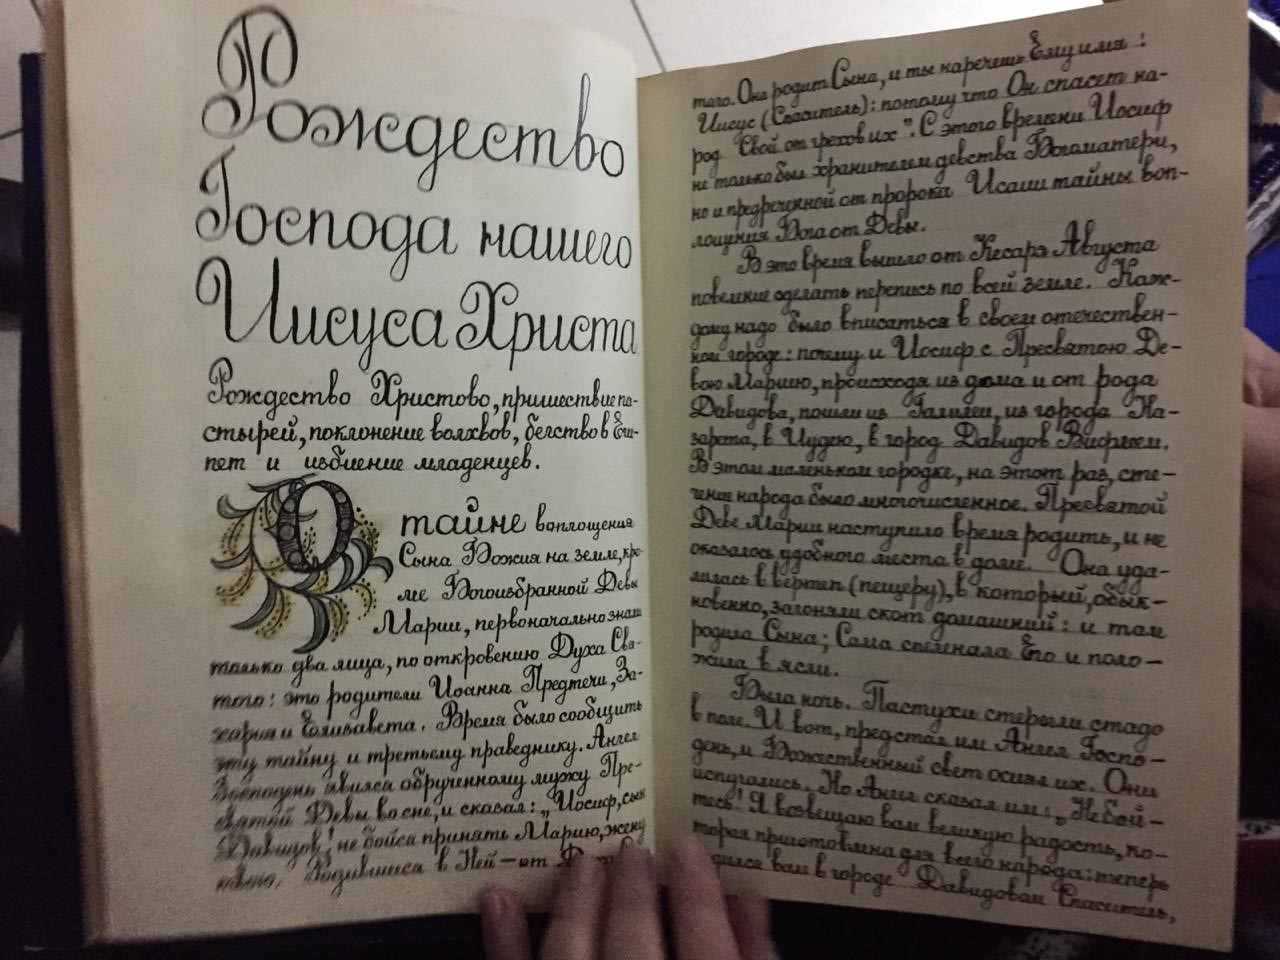 Рождество
Господа нашего
Иисуса Христа
Рождество Христово, пришествие па-
стырей, поклонение волхвов, бегство в Еги-
пет и избиение младенцев.
О тайне воплощения
Сына Божия на земле, кро-
ме Богоизбранной Девы
Марии, первоначально знали
только два лица, по откровению Духа Свя-
того: это родители Иоанна Предтечи, За-
хария и Елисавета. Время было сообщить
эту тайну и третьему праведнику. Ангел
Господень явился обрученному мужу Пре-
святой Девы во сне, и сказал: „Иосиф, сын
Давидов! не бойся принять Марию, жену
твою. Родившееся в Ней — от Духа
того. Она родит Сына, и ты наречешь Ему имя:
Иисус (Спаситель): потому что Он спасет на-
род Свой от грехов их". С этого времени Иосиф
не только был хранителем девства Богоматери,
но и предреченной от пророка Исаии тайны воп-
лощения Бога от Девы.
В это время вышло от Кесаря Августа
повеление сделать перепись по всей земле. Каж-
дому надо было вписаться в своем отечествен-
ном городе: почему и Иосиф с Пресвятою Де-
вою Мариею, происходя из дома и от рода
Давидова, пошли из Галилеи, из города На-
зарета, в Иудею, в город Давидов Вифлеем.
В этом маленьком городке, на этот раз, сте-
чение народа было многочисленное. Пресвятой
Деве Марии наступило время родить, и не
оказалось удобного места в доме. Она уда-
лилась в вертеп (пещеру), в который, обык-
новенно, загоняли скот домашний: и там
родила Сына; Сама спеленала Его и поло-
жила в ясли.
Была ночь. Пастухи стерегли стадо
в поле. И вот, предстал им Ангел Госпо-
день, и Божественный свет осиял их. Они
испугались. Но Ангел сказал им: „Не бой-
тесь! Я возвещаю вам великую радость, ко-
торая приготовлена для всего народа: теперь
родился вам в городе Давидовом Спаситель,